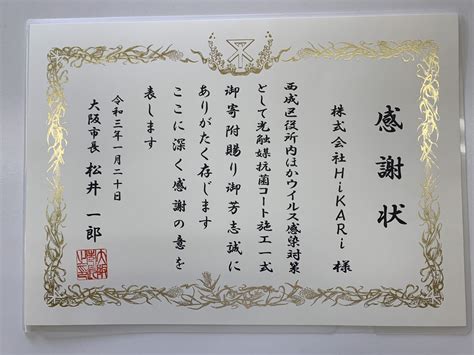 感謝状
株式会社HiKARi 様
西成区役所内ほかウイルス感染対策
として光触媒抗菌コート施工一式
御寄附賜り御芳志誠に
ありがたく存じます
ここに深く感謝の意を
表します
令和三年一月二十日
大阪市長 松井 一郎